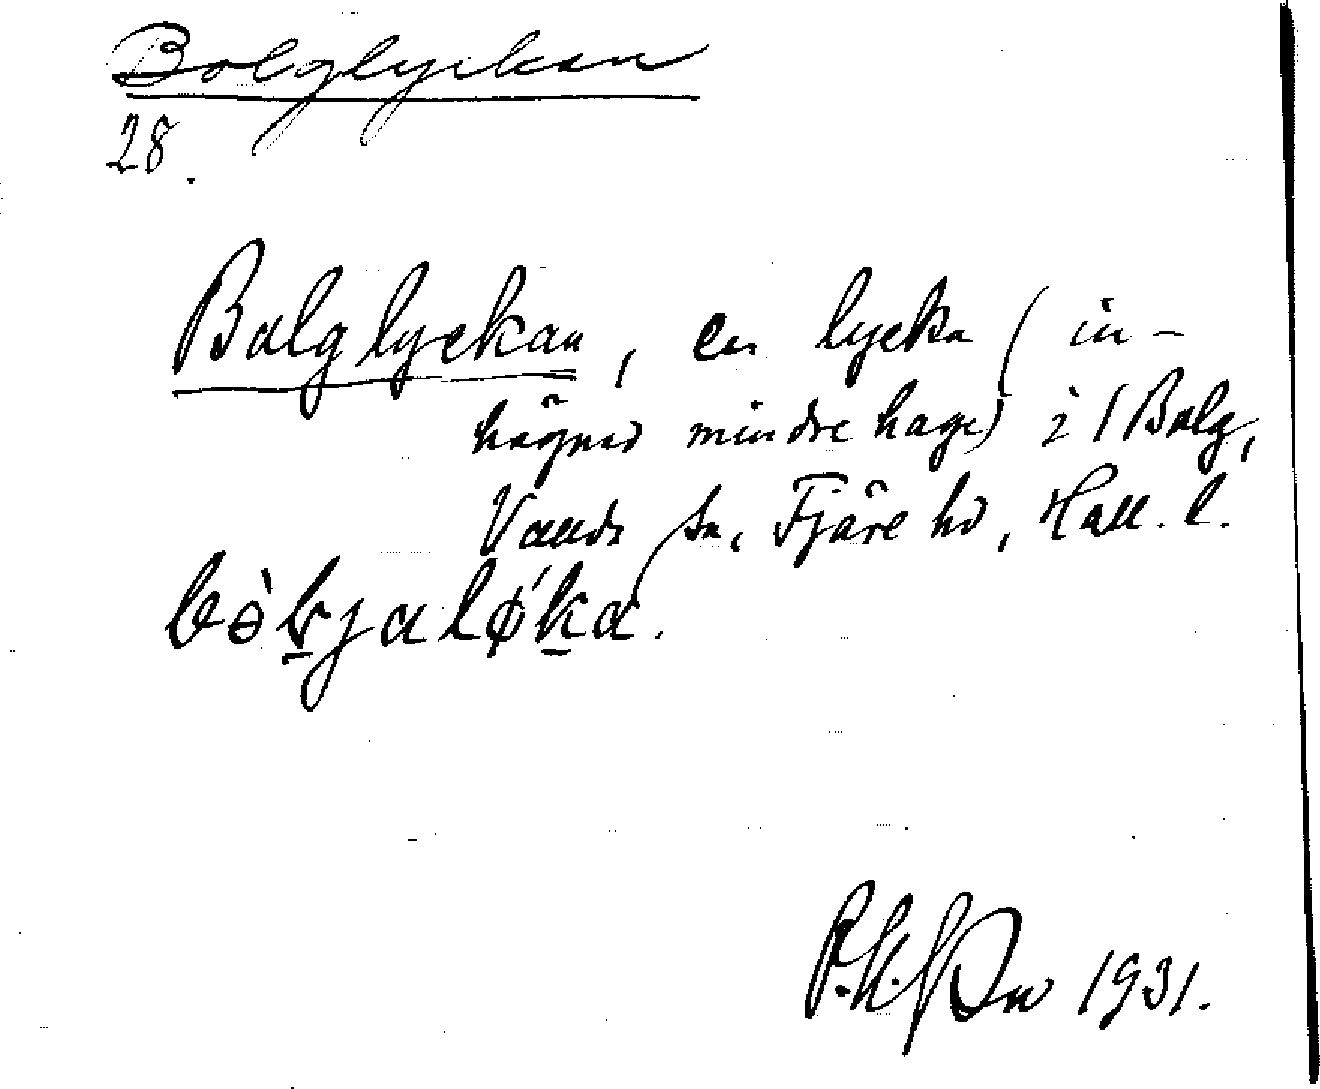 Bolglyckan
28.
Bolglyckan, en lycka (in-
hägnad mindre hage) i 1 Bolg,
Vands sn, Fjäre hd, Hall. l.
1931.